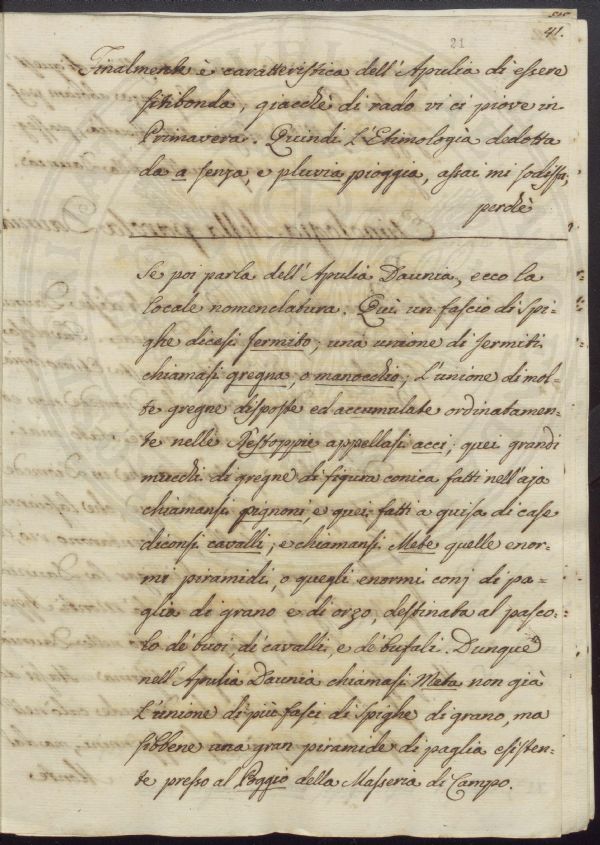 41.
21
Finalmente è caratteristica dell'Apulia di essere
sitibonda, giacchè di rado vi ci piove in
Primavera. Quindi L'Etimologia dedotta
da a senza, e pluvia pioggia, assai mi sodisfa,
perchè
Se poi parla dell'Apulia Daunia, ecco la
locale nomenclatura. Qui un fascio di spi-
ghe dicesi sermito; una unione di sermiti
chiamasi gregna, o manocchio; L'unione di mol-
te gregne disposte ed accumulate ordinatamen-
te nelle Restoppie appellasi acci, quei grandi
mucchi di gregne di figura conica fatti nell'aja
chiamansi pignoni, e quei fatti a guisa di case
diconsi cavalli; e chiamansi Mete quelle enor-
mi piramidi, o quegli enormi conj di pa-
glia di grano e di orzo, destinata al pasco-
lo de' buoi, di cavalli, e de' bufali. Dunque
nell'Apulia Daunia chiamasi Meta non già
L'unione di più fasci di spighe di grano, ma
sibbene una gran piramide di paglia esisten-
te presso al Poggio della Masseria di Campo.